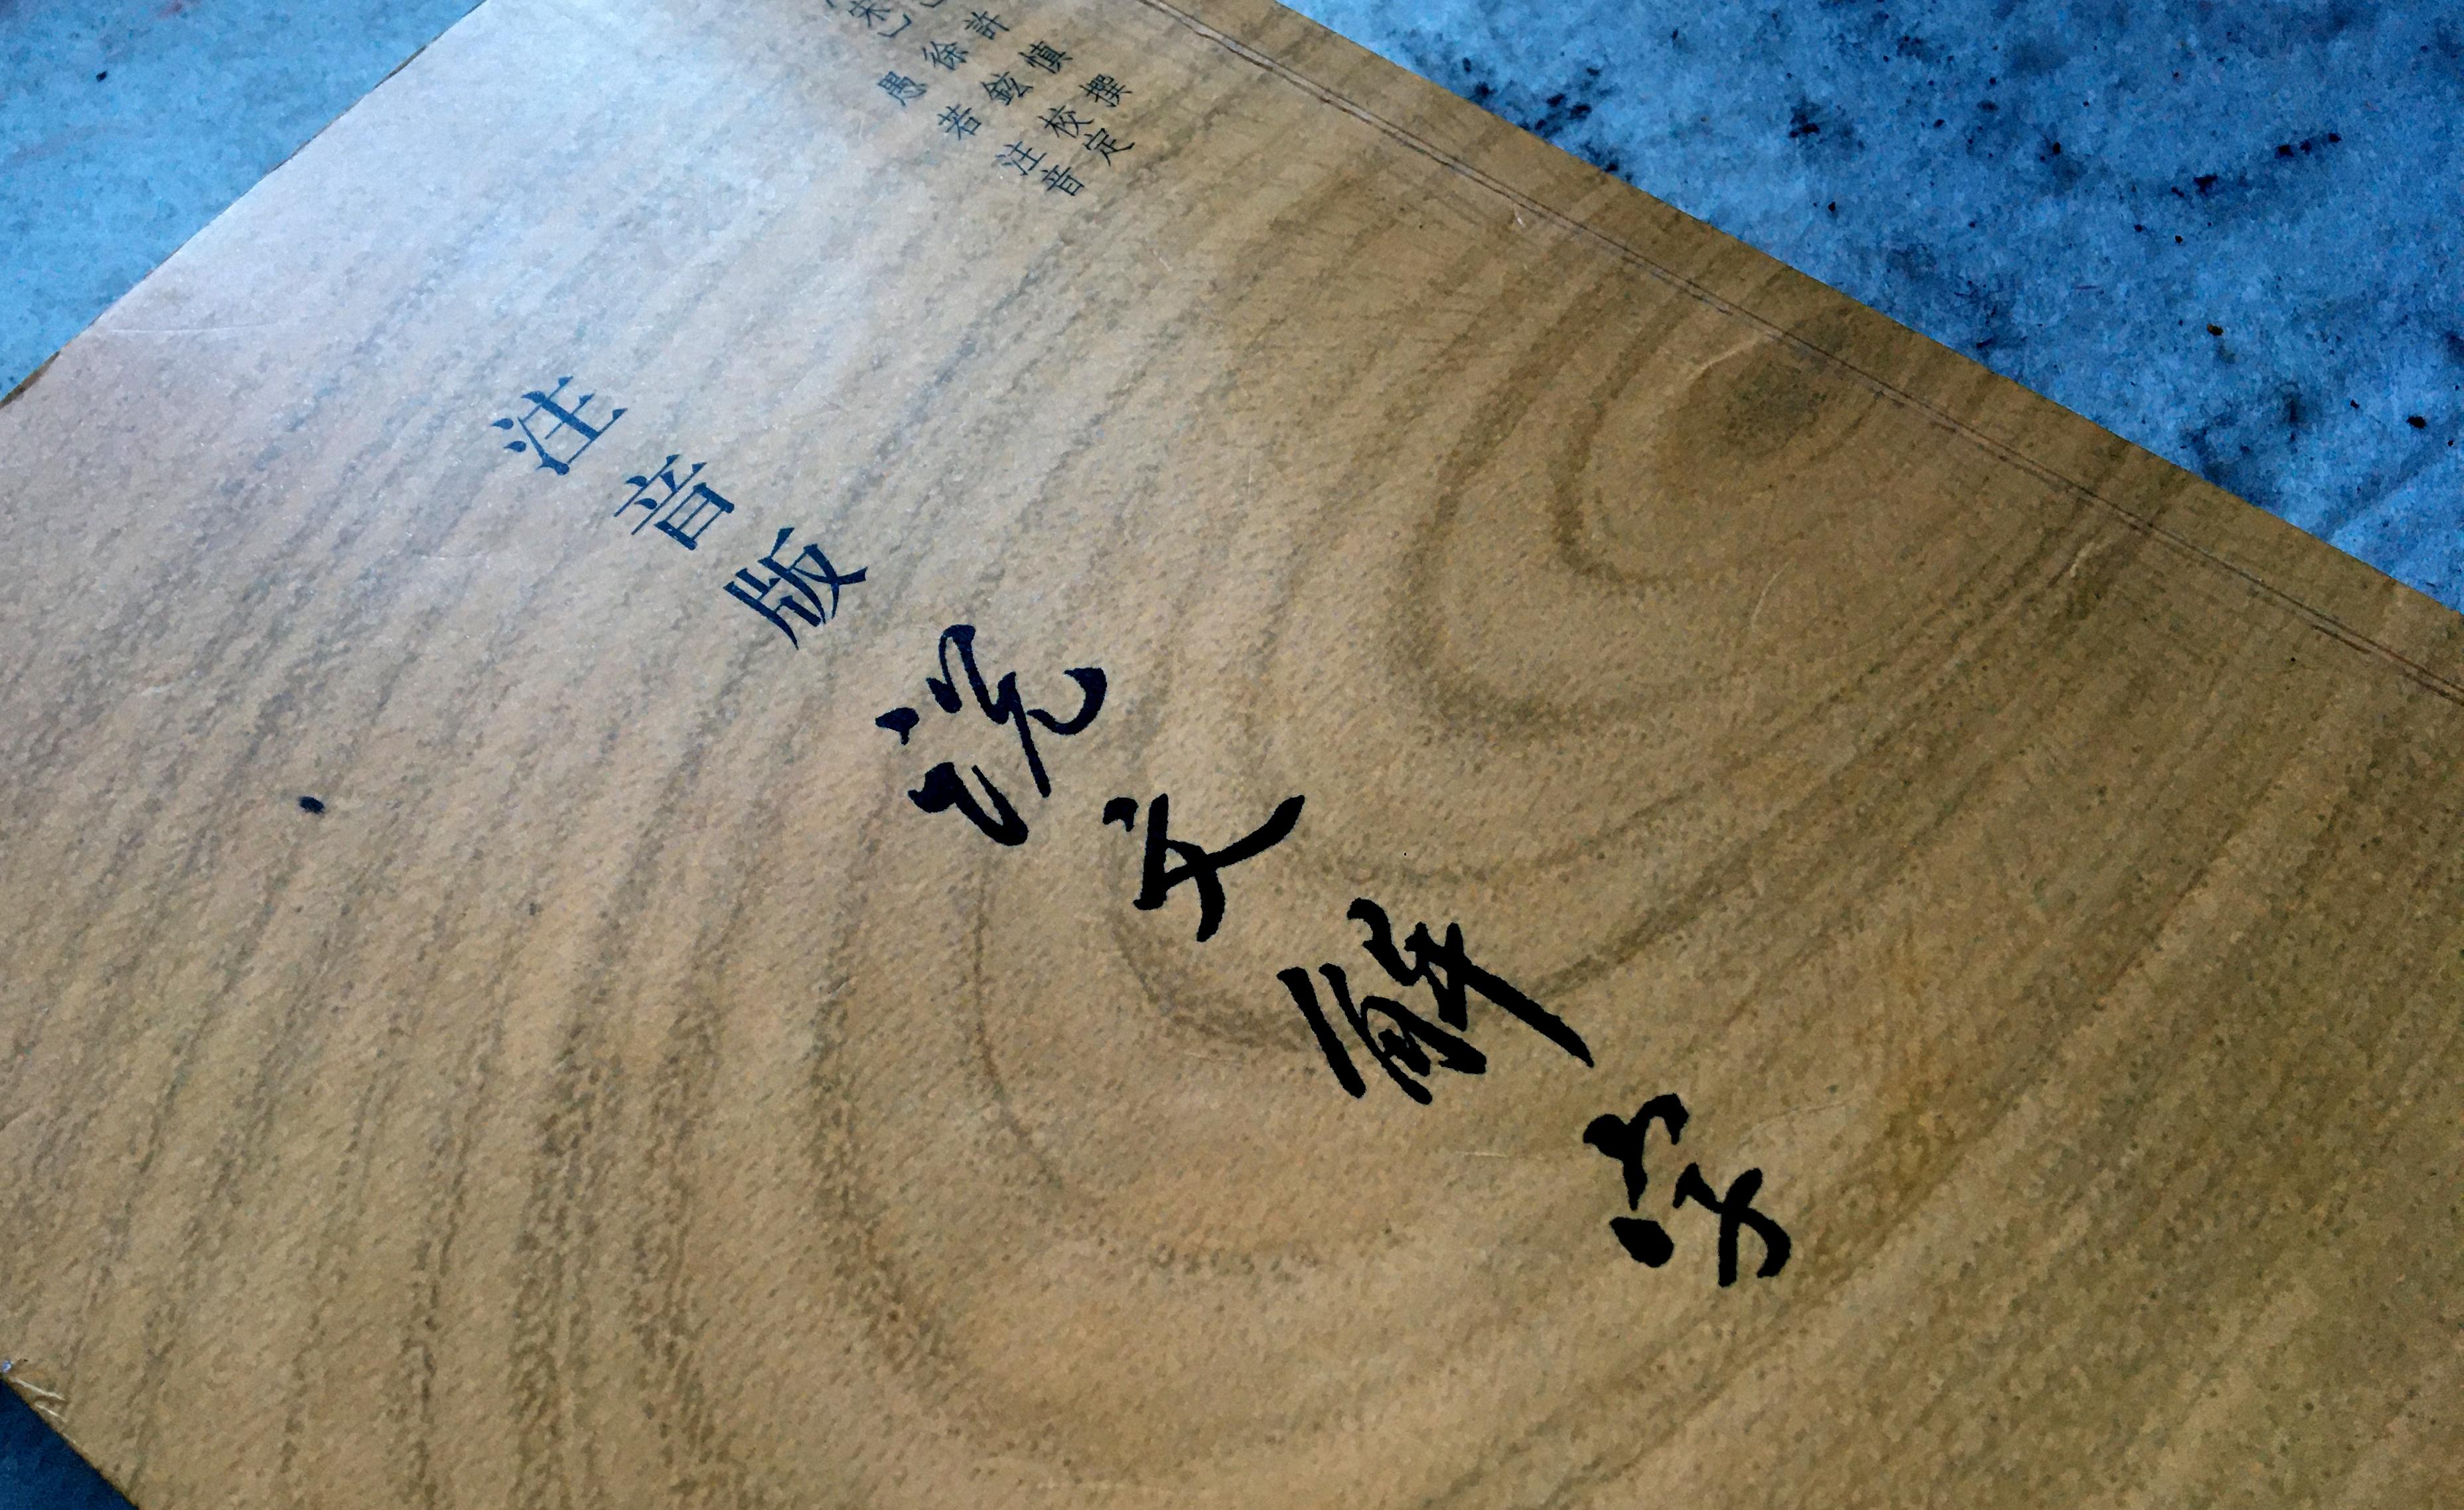 許慎撰
宋〕徐鉉校定
愚若注音
注音版
说文解字